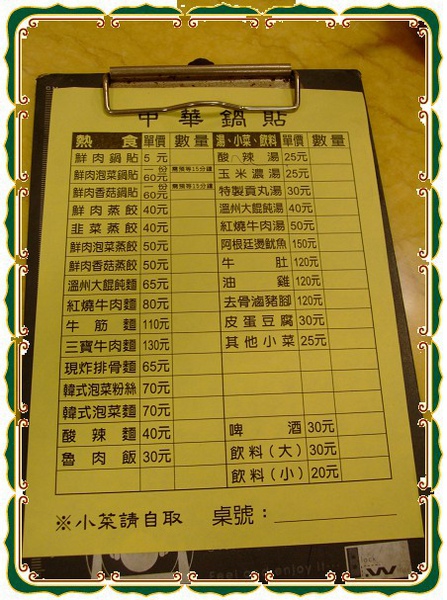 中華鍋貼
熱食 單價 數量 湯、小菜、飲料 單價 數量
鮮肉鍋貼 5元 酸辣湯 25元
鮮肉泡菜鍋貼 一份60元 需預等15分鐘 玉米濃湯 25元
鮮肉香菇鍋貼 一份60元 需預等15分鐘 特製貢丸湯 30元
鮮肉蒸餃 40元 溫州大餛飩湯 40元
韭菜蒸餃 40元 紅燒牛肉湯 50元
鮮肉泡菜蒸餃 50元 阿根廷燙魷魚 150元
鮮肉香菇蒸餃 50元 牛肚 120元
溫州大餛飩麵 65元 油雞 120元
紅燒牛肉麵 80元 去骨滷豬腳 120元
牛筋麵 110元 皮蛋豆腐 30元
三寶牛肉麵 130元 其他小菜 25元
現炸排骨麵 65元
韓式泡菜粉絲 70元
韓式泡菜麵 70元
酸辣麵 40元 啤酒 30元
魯肉飯 30元 飲料(大) 30元
飲料(小) 20元
※小菜請自取 桌號：